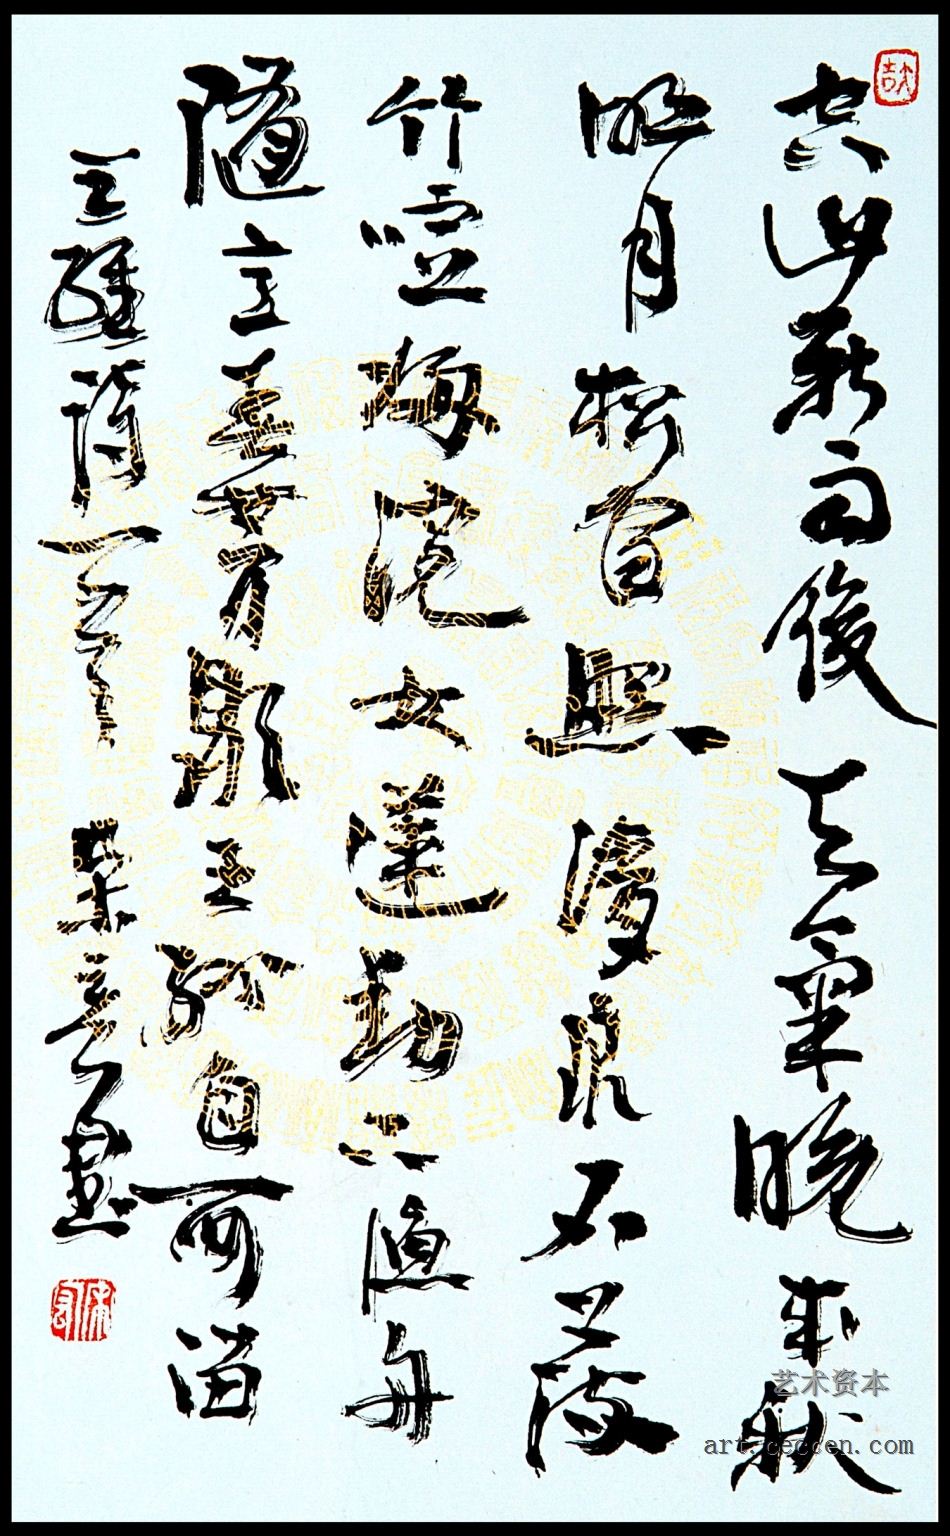 空山新雨後天氣晚來秋
明月松間照清泉石上流
竹喧歸浣女蓮動下漁舟
隨意春芳歇王孫自可留
王維詩一首 書
艺术资本
art.ceccen.com